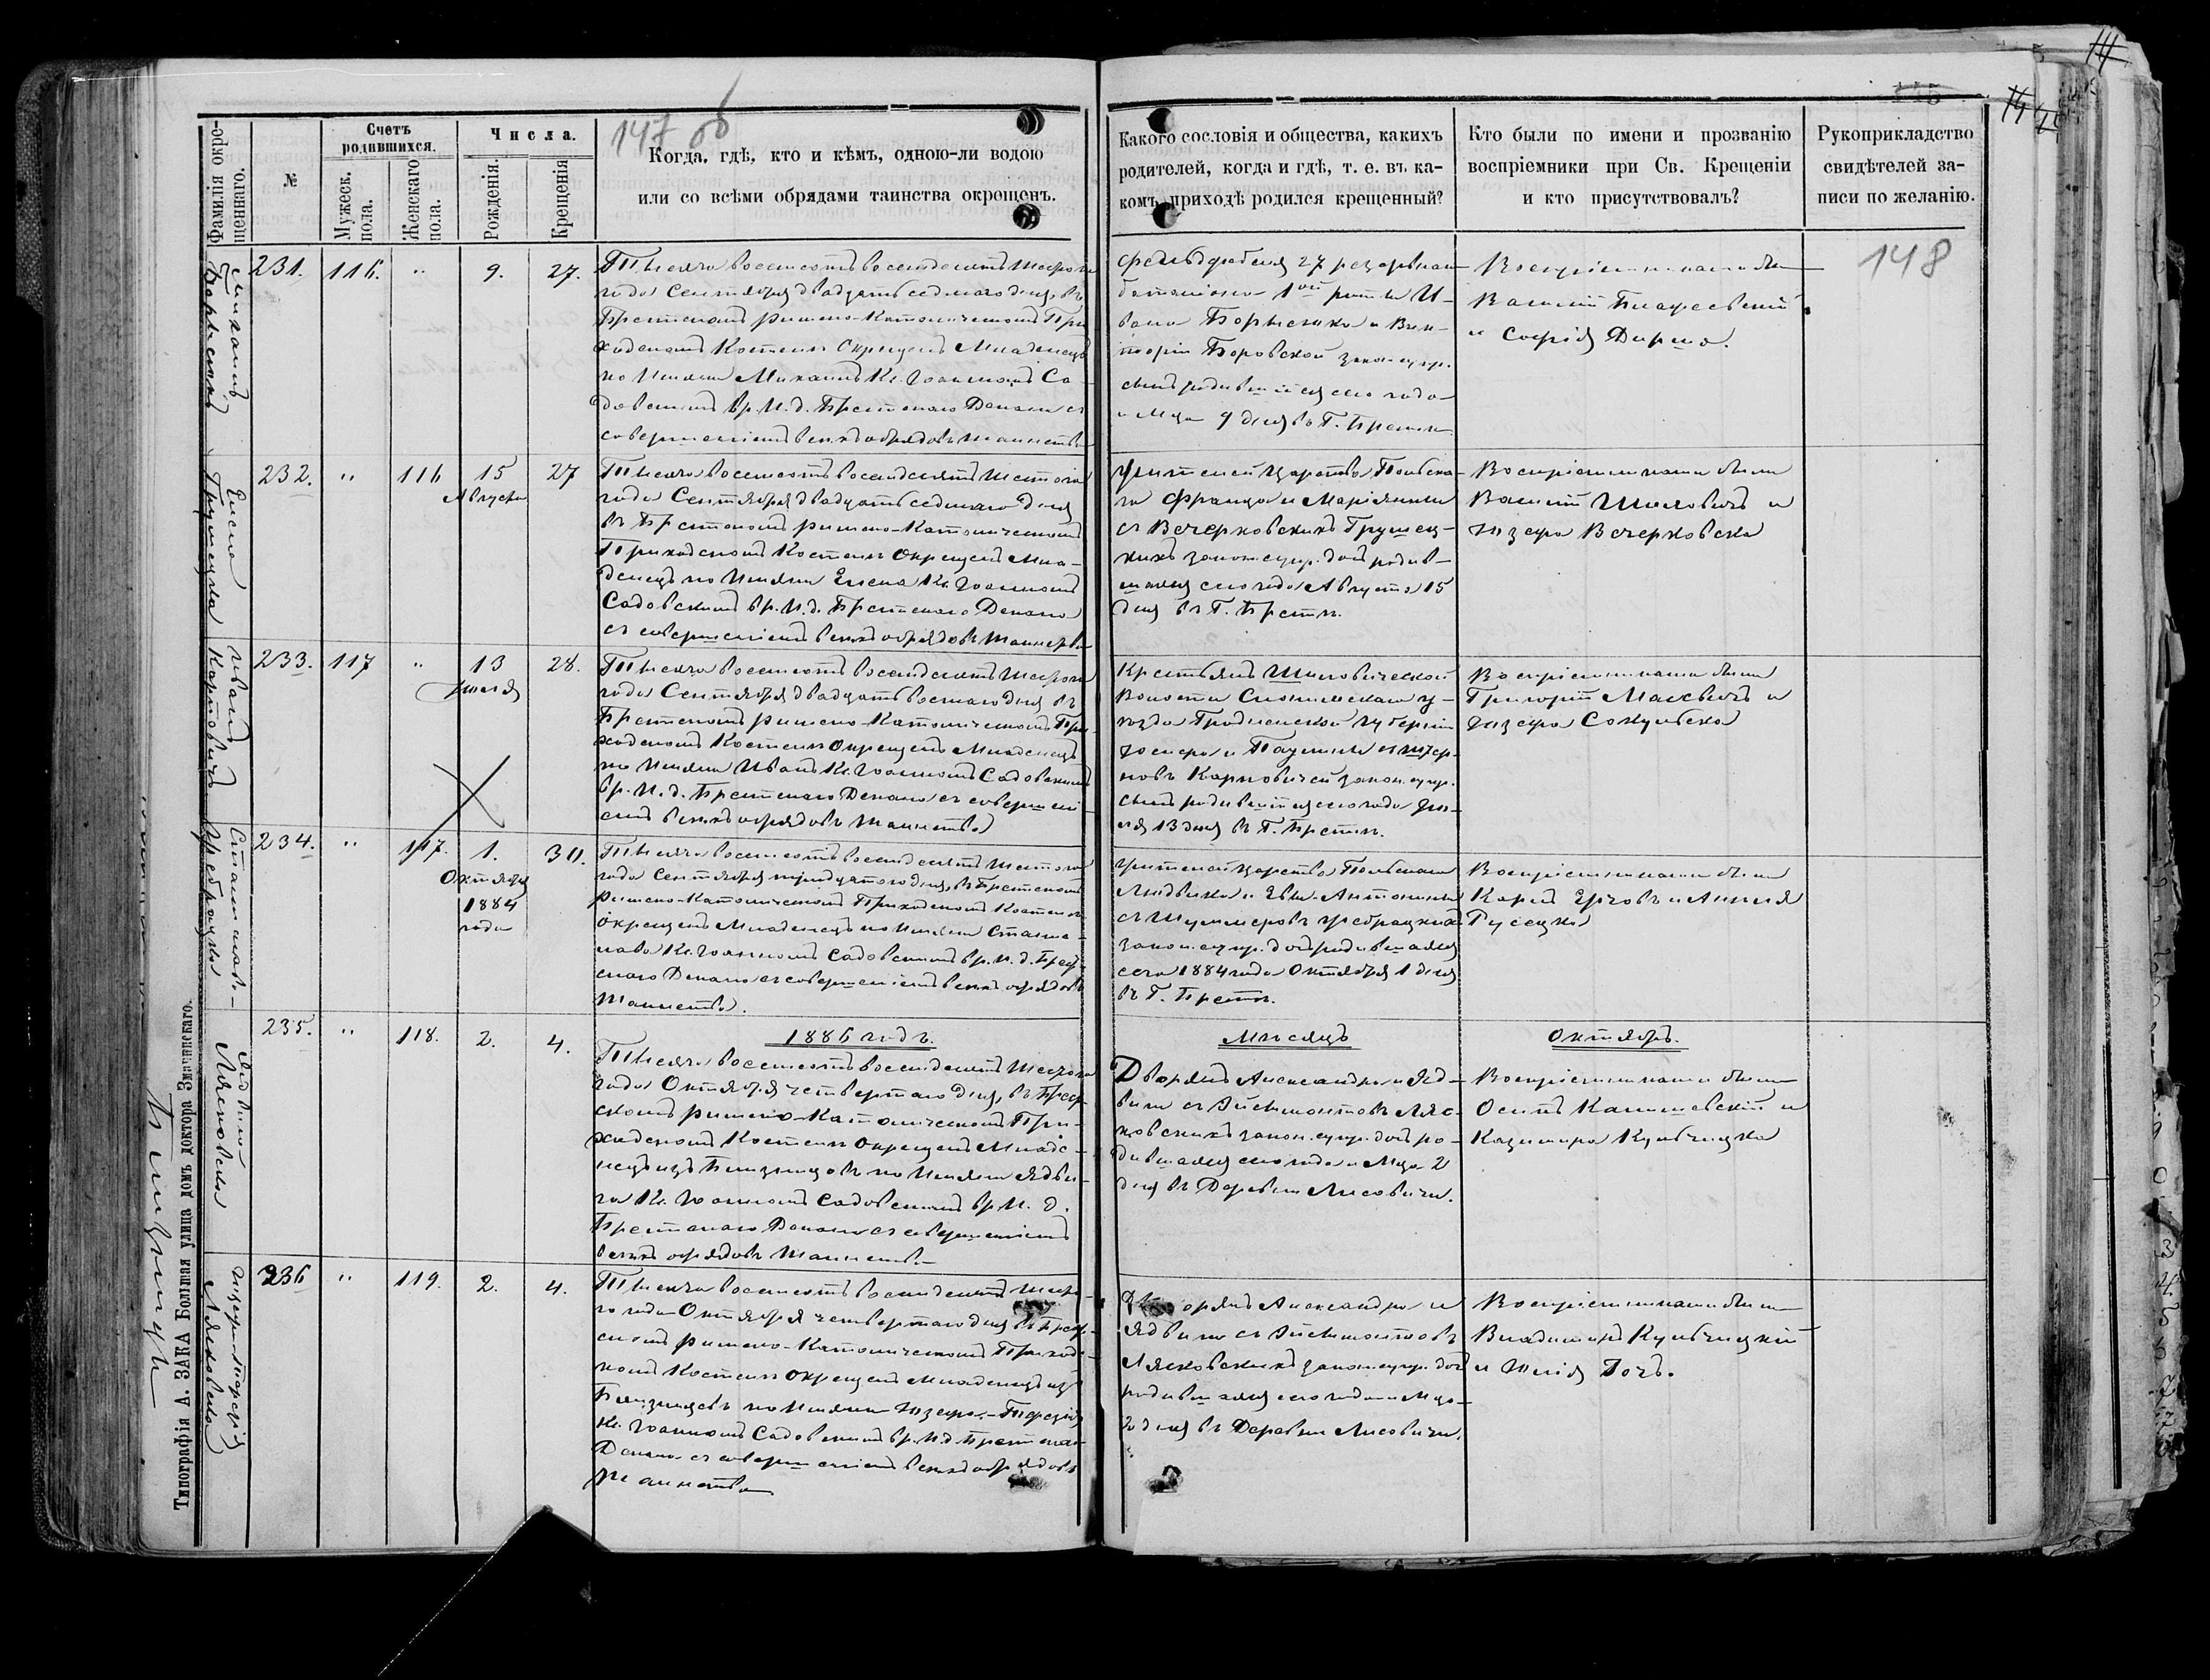 147 об
148
115
Фамилія окре-
щеннаго.
№
Счетъ
родившихся.
Мужеск.
пола.
Женскаго
пола.
Числа.
Рожденія.
Крещенія
Когда, гдѣ, кто и кѣмъ, одною-ли водою
или со всѣми обрядами таинства окрощенъ.
Какого сословія и общества, какихъ
родителей, когда и гдѣ, т. е. въ ка-
комъ приходѣ родился крещенный?
Кто были по имени и прозванію
воспріемники при Св. Крещеніи
и кто присутствовалъ?
Рукоприкладство
свидѣтелей за-
писи по желанію.
Михаилъ
231. 116. " 9. 27.
Тысяча восемьсотъ восемьдесятъ шестого
года Сентября двадцать седьмого дня, въ
Брестскомъ римско-Католическомъ При-
ходскомъ Костелѣ Окрещенъ Младенецъ
по имени Михаилъ Кс. Іоанномъ Са-
довскимъ вр. И. д. Брестскаго Декана съ
совершеніемъ всѣхъ обрядовъ таинства
Фельдфебеля 27 резервнаго
баталіона 1ой роты И-
вана Борысюка и Вик-
торіи Боровской закон. супр.
сынъ родившійся сего года
и М-ца 9 дня въ Г. Брестѣ.
Воспріемниками были
Василій
и Софія Дирма.
Елена
Грушецка
232. " 116 15 27
Августа
Тысяча восемьсотъ восемьдесятъ шестого
года Сентября двадцать седьмаго дня
въ Брестскомъ римско-Католическомъ
Приходскомъ Костелѣ Окрещенъ Мла-
денецъ по имени Елена Кс. Іоанномъ
Садовскимъ вр. И. д. Брестскаго Декана
съ совершеніемъ всѣхъ обрядовъ таинства
Жителей Царства Польска-
го Франца и Маріянны
съ Вечерковскихъ Грушец-
кихъ закон. супр. дочь родив-
шаяся сего года Августа 15
дня въ Г. Брестѣ.
Воспріемниками были
Василій и
Юзефа Вечерковска
Иванъ
Карповичъ
233. 117 " 13 28.
Іюля
Тысяча восемьсотъ восемьдесятъ шестого
года Сентября двадцать восьмаго дня въ
Брестскомъ римско-Католическомъ При-
ходскомъ Костелѣ Окрещенъ Младенецъ
по имени Иванъ Кс. Іоанномъ Садовскимъ
вр. И. д. Брестскаго Декана съ совершені-
емъ всѣхъ обрядовъ таинства
Крестьянъ Шиловической
Волости Слонимскаго у-
ѣзда Гродненской губерніи
Іосифа и Паулины съ
Карповичей закон. супр.
сынъ родившійся сего года Ію-
ля 13 дня въ Г. Брестѣ.
Воспріемниками были
Григорій и
Юзефа Сокульска
234. " 117. 1. 30.
Октября
1884
года
Тысяча восемьсотъ восемьдесятъ шестого
года Сентября тридцатого дня, въ Брестскомъ
Римско-Католическомъ Приходскомъ Костелѣ
окрещенъ Младенецъ по имени Станис-
лава Кс. Іоанномъ Садовскимъ вр. И. д. Брест-
скаго Декана съ совершеніемъ всѣхъ обрядовъ
таинства.
Жителей Царства Польскаго
Людвика и Евы-Антонины
съ
закон. супр. дочь родившаяся
сего 1884 года Октября 1 дня
въ Г. Брестѣ.
Воспріемниками были
Карлъ
Русецка
1886 годъ.
Мѣсяцъ
Октябрь.
Ядвига
Лясковска
235. " 118. 2. 4.
Тысяча восемьсотъ восемьдесятъ шестого
года Октября четвертаго дня, въ Брест-
скомъ римско-Католическомъ При-
ходскомъ Костелѣ Окрещенъ Младе-
нецъ изъ Близнецовъ по имени Ядви-
га Кс. Іоанномъ Садовскимъ вр. И. д.
Брестскаго Декана съ совершеніемъ
всѣхъ обрядовъ таинства
Дворянъ Александра и Яд-
виги съ Ляс-
ковскихъ закон. супр. дочь ро-
дившаяся сего года и М-ца 2
дня въ Деревни Лисовичи.
Воспріемниками были
Осипъ и
Казимира Кульчицка
Юзефа-Терезія
Лясковска
236 " 119. 2. 4.
Тысяча восемьсотъ восемьдесятъ шесто-
го года Октября четвертаго дня въ Брест-
скомъ Римско-Католическомъ Приход-
комъ Костелѣ окрещенъ Младенецъ изъ
Близнецовъ по имени Юзефа-Терезія
Кс. Іоанномъ Садовскимъ вр. И. д. Брестскаго
Декана съ совершеніемъ всѣхъ обрядовъ
таинства
Дворянъ Александра и
Ядвиги съ
Лясковскихъ закон. супр. дочь
родившаяся сего года и М-ца
2 дня въ Деревни Лисовичи.
Воспріемниками были
Владиміръ Кульчицкій
и Юлія
Типографія А. ЗАКА Большая улица домъ доктора Знаменскаго.
Близнецы